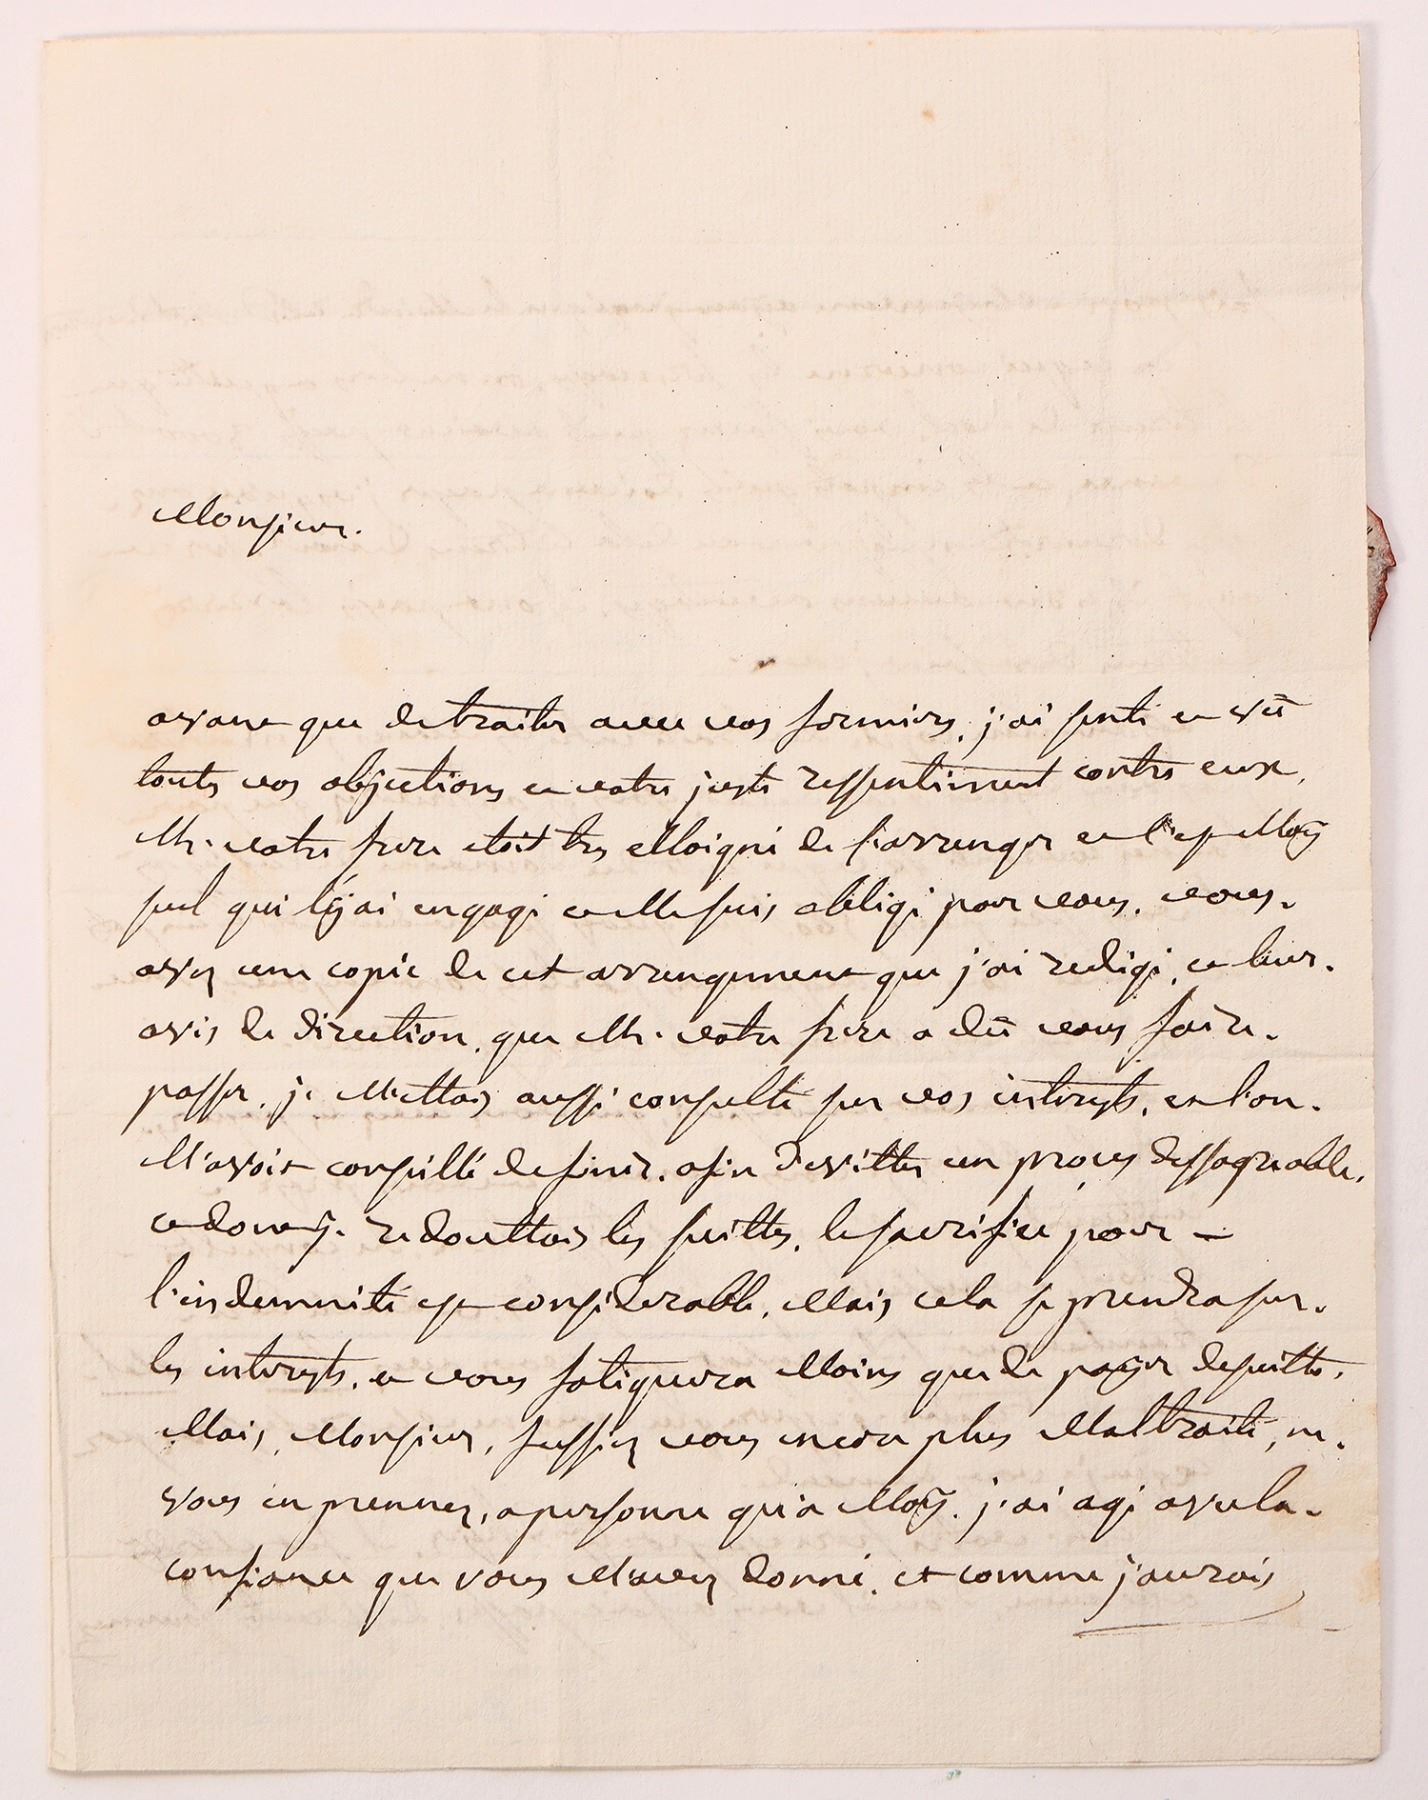 Monsieur.
avant que de traiter avec vos fermiers, j'ai senti et vû
touts vos objections et votre juste ressentiment contre eux,
Mr. votre frere etoit tres elloigné de s'arranger et c'est Moÿ
seul qui l'ÿ ai engagé et Me suis obligé pour vous. vous.
avez une copie de cet arrangement que j'ai redigé, et leur.
avis de direction, que Mr. votre frere a dû vous faire.
passer. je M'ettois aussi consulté sur vos interests, et l'on.
M'avoit conseillé de finir. afin d'evitter un proces dessagreable.
et dont je redouttois les suittes, le sacrifice pour –
l'indemnité est considerable, Mais cela se prendra sur.
les interests, et vous fatiguera Moins que de payer de suitte,
Mais, Monsieur, fussiez vous encore plus Maltraité, ne.
vous en prennez, a personne qu'a Moÿ. j'ai agi avec la.
confiance que vous M'avez donné, et comme j'aurois